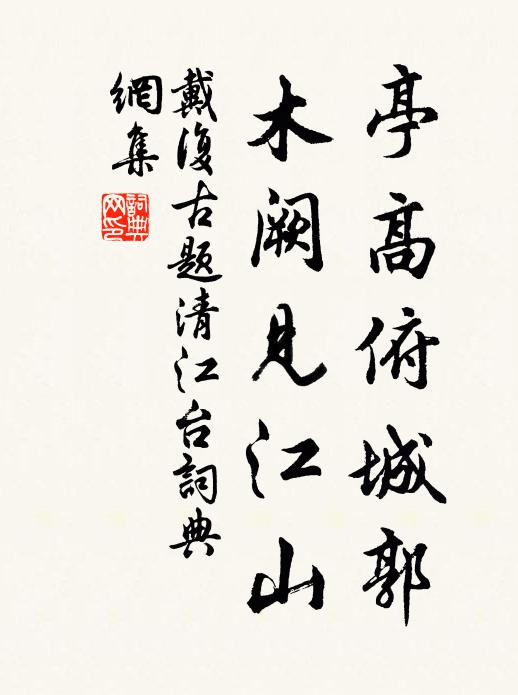 亭高俯城郭
木阙見江山
戴復古题清江台詞典
網集
詞典
网印